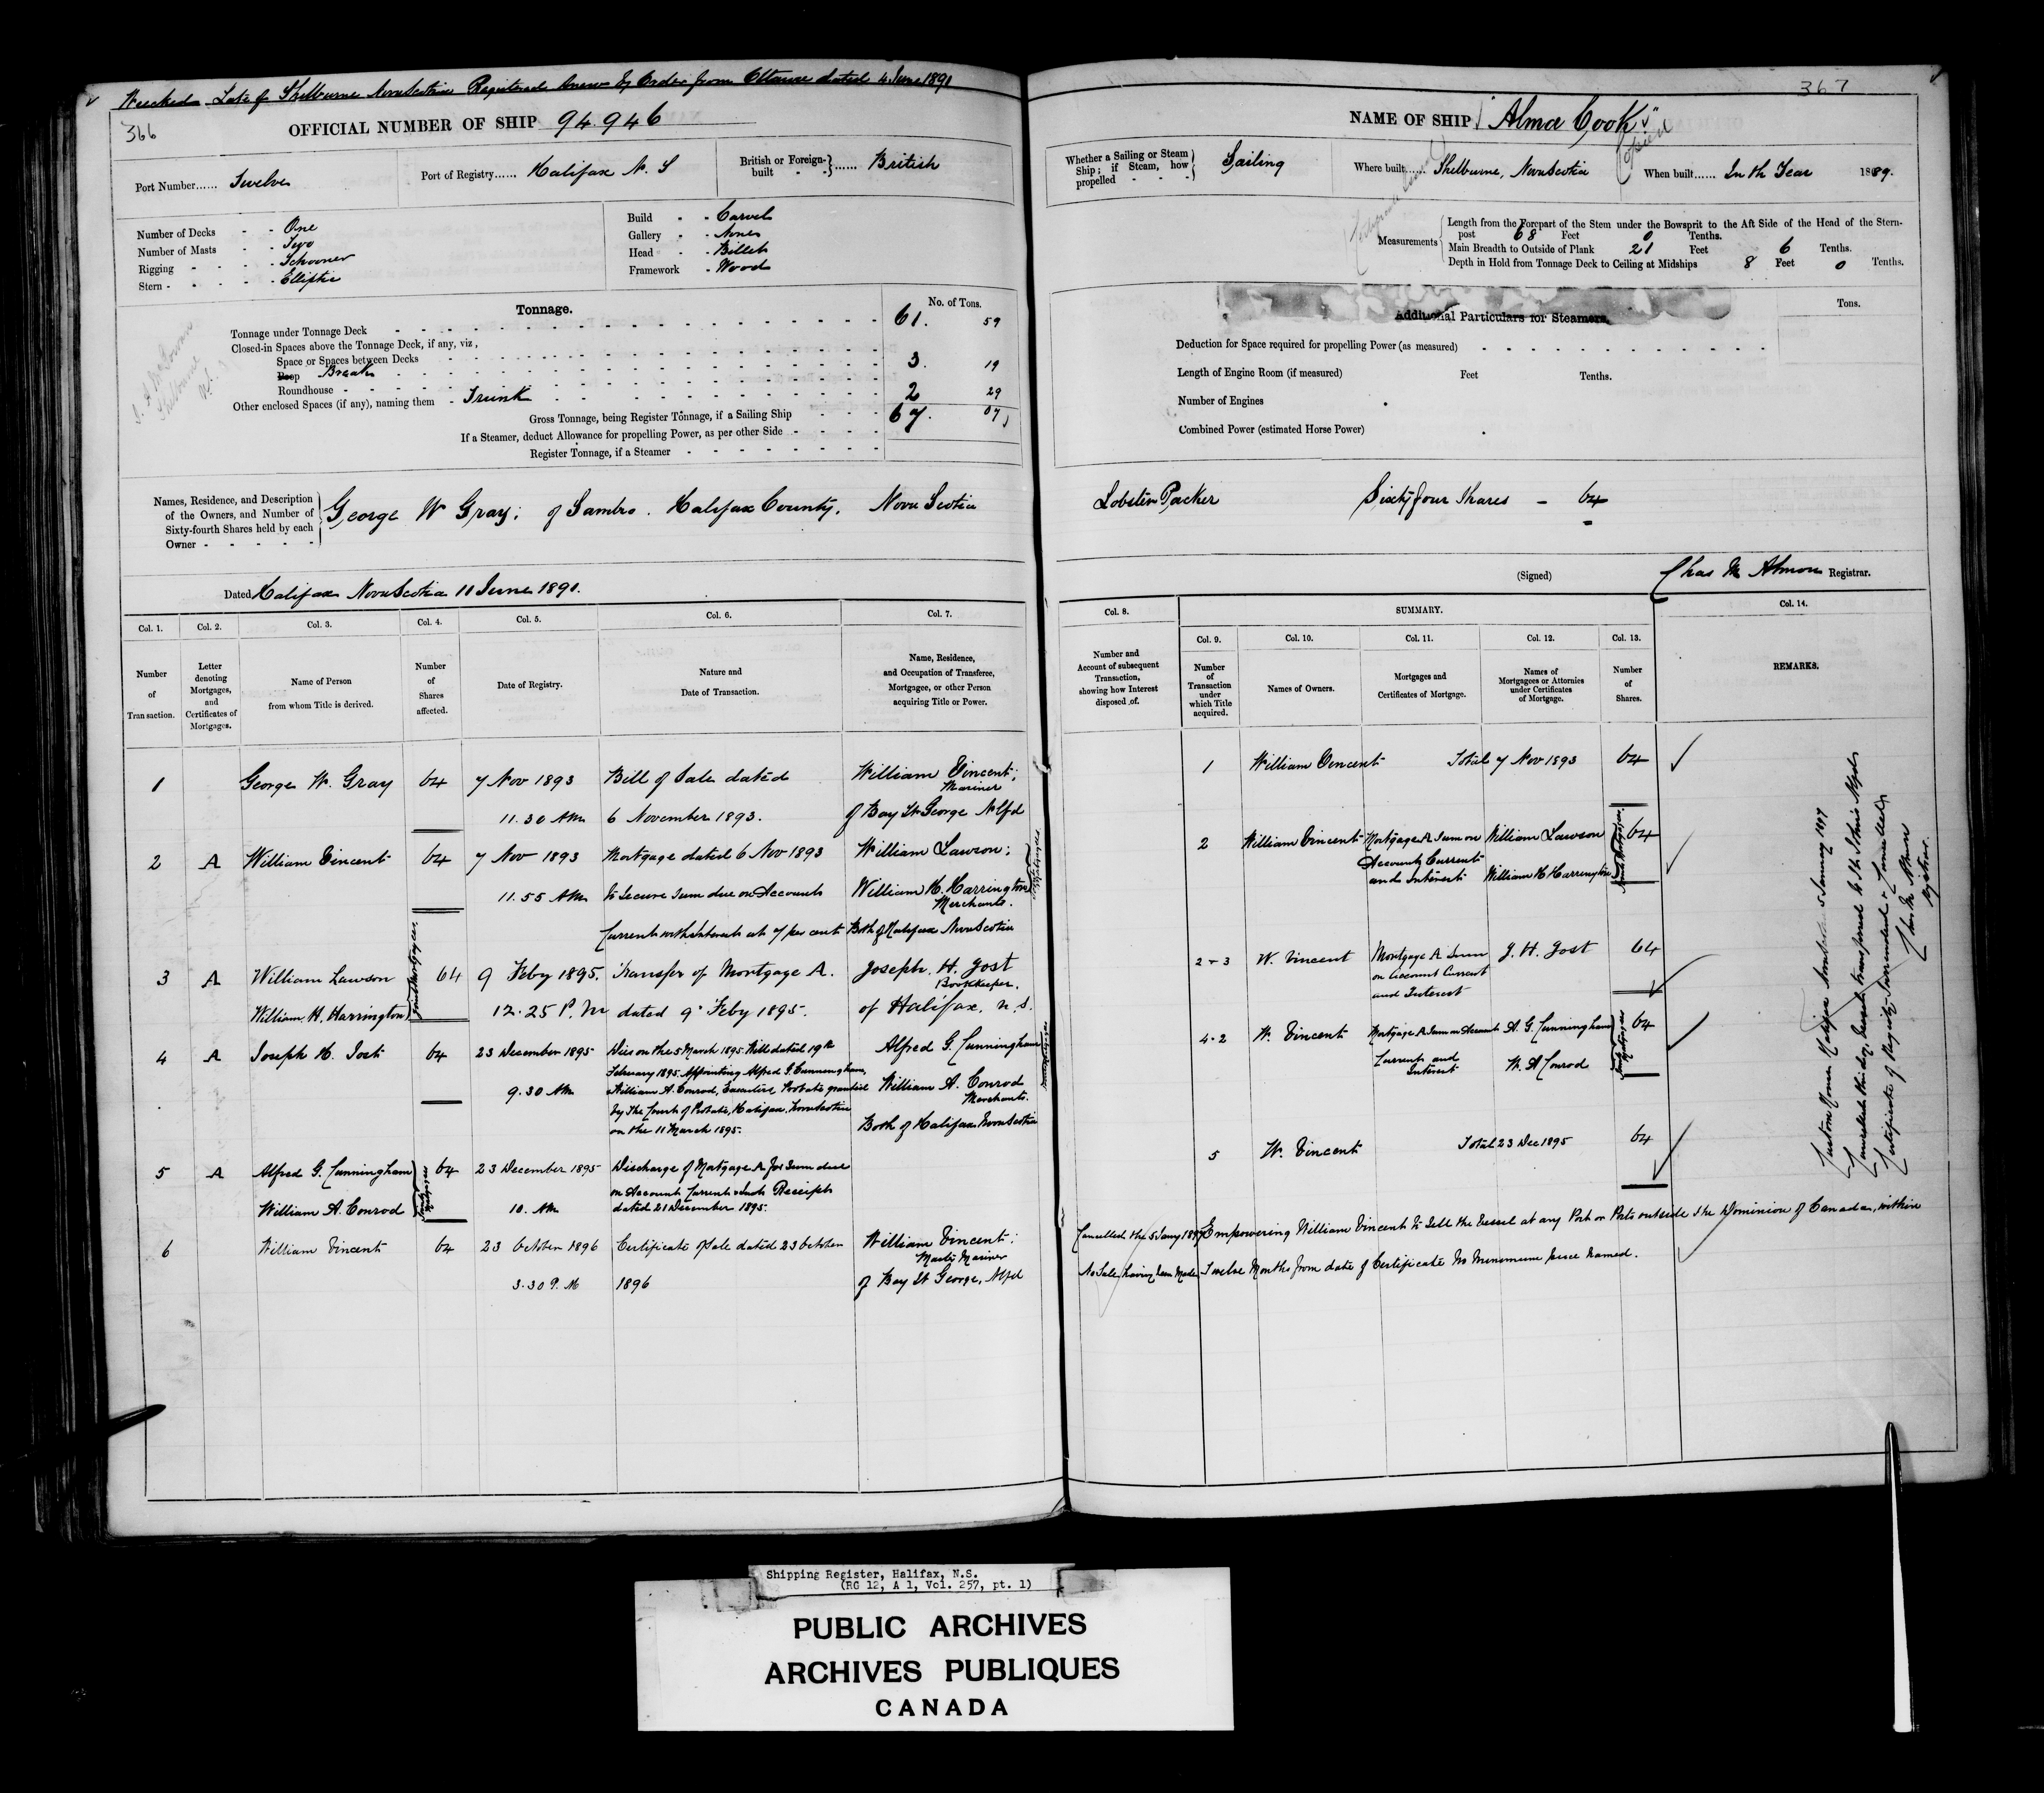 Wrecked Late of Shelburne Nova Scotia Registered Anew by Order from Ottawa dated 4 June 1891
366
OFFICIAL NUMBER OF SHIP 94.946
Port Number...... Twelve
Port of Registry...... Halifax N. S
British or Foreign-built - - } ...... British
Number of Decks - - One
Number of Masts - - Two
Rigging - - - - Schooner
Stern - - - - - Elliptic
Build - - Carvel
Gallery - - None
Head - - Billet
Framework - Wood
Tonnage.
No. of Tons.
Tonnage under Tonnage Deck 61. 59
Closed-in Spaces above the Tonnage Deck, if any, viz,
Space or Spaces between Decks
Poop Break 3. 19
Roundhouse
Other enclosed Spaces (if any), naming them - Trunk 2 29
Gross Tonnage, being Register Tonnage, if a Sailing Ship 67. 07
If a Steamer, deduct Allowance for propelling Power, as per other Side
Register Tonnage, if a Steamer
Names, Residence, and Description
of the Owners, and Number of
Sixty-fourth Shares held by each
Owner
George W Gray; of Sambro. Halifax County. Nova Scotia
Dated Halifax Nova Scotia 11 June 1891.
Col. 1. Col. 2. Col. 3. Col. 4. Col. 5. Col. 6. Col. 7.
Number of Transaction.
Letter denoting Mortgages, and Certificates of Mortgages.
Name of Person from whom Title is derived.
Number of Shares affected.
Date of Registry.
Nature and Date of Transaction.
Name, Residence, and Occupation of Transferee, Mortgagee, or other Person acquiring Title or Power.
1 George W. Gray 64 7 Nov 1893 Bill of Sale dated William Vincent;
Mariner
11.30 AM 6 November 1893. of Bay St George Nlfd
2 A William Vincent 64 7 Nov 1893 Mortgage dated 6 Nov 1893 William Lawson;
11.55 AM to Secure Sum due on Accounts William H. Harrington
Merchants.
Current with Interest at 7 per cent Both of Halifax Nova Scotia
Joint Mortgagees
3 A William Lawson 64 9 Feby 1895. Transfer of Mortgage A. Joseph. H. Jost
Bookkeeper.
William. H. Harrington 12.25 P.M dated 9 Feby 1895. of Halifax, N.S.
Joint Mortgagees
4 A Joseph H. Jost 64 23 December 1895 Dies on the 5 March 1895. Will dated 19th Alfred G. Cunningham
February 1895. Appointing Alfred G. Cunningham,
9.30 AM William A. Conrod, Executors, Probate granted William A. Conrod
Merchants.
by the Court of Probate, Halifax, Nova Scotia
on the 11 March 1895. Both of Halifax Nova Scotia
Joint Mortgagees
5 A Alfred G. Cunningham 64 23 December 1895 Discharge of Mortgage A for Sum due
on Account Current & Int. Receipt
William A. Conrod 10. AM dated 21 December 1895.
Joint Mortgagees
6 William Vincent 64 23 October 1896 Certificate of Sale dated 23 October William Vincent;
Master Mariner
3.30 P.M 1896 of Bay St George, Nfld
367
NAME OF SHIP "Alma Cook"
Whether a Sailing or Steam Ship; if Steam, how propelled - - - Sailing
Where built...... Shelburne, Nova Scotia
When built...... In the Year 1889.
Measurements
Length from the Forepart of the Stem under the Bowsprit to the Aft Side of the Head of the Stern-
post 68 Feet 0 Tenths.
Main Breadth to Outside of Plank 21 Feet 6 Tenths.
Depth in Hold from Tonnage Deck to Ceiling at Midships 8 Feet 0 Tenths.
Additional Particulars for Steamers.
Tons.
Deduction for Space required for propelling Power (as measured)
Length of Engine Room (if measured) Feet Tenths.
Number of Engines
Combined Power (estimated Horse Power)
Lobster Packer Sixty four Shares - 64
(Signed) Chas M Almon Registrar.
Col. 8. SUMMARY. Col. 14.
Col. 9. Col. 10. Col. 11. Col. 12. Col. 13.
Number and Account of subsequent Transaction, showing how Interest disposed of.
Number of Transaction under which Title acquired.
Names of Owners.
Mortgages and Certificates of Mortgage.
Names of Mortgagees or Attornies under Certificates of Mortgage.
Number of Shares.
REMARKS.
1 William Vincent Total 7 Nov 1893 64
2 William Vincent Mortgage A Sum on William Lawson 64
Account Current
and Interest William H Harrington
Joint Mortgagees
2-3 W. Vincent Mortgage A Sum J. H. Jost 64
on account Current
and Interest
4-2 W. Vincent Mortgage A Sum on Account A. G. Cunningham 64
Current and
Interest W. A Conrod
Joint Mortgagees
5 W. Vincent Total 23 Dec 1895 64
Cancelled the 5 Jany 1897 Empowering William Vincent to Sell the Vessel at any Port or Ports outside the Dominion of Canada, within
No Sale having been Made. Twelve Months from date of Certificate No Minimum price named.
Custom House Halifax 5 January 1897
Cancelled this day, Vessel transferred to St. Johns Nfld
Certificate of Registry Surrendered & Cancelled,
Chas M Almon
Registrar.
Shipping Register, Halifax, N.S.
(RG 12, A 1, Vol. 257, pt. 1)
PUBLIC ARCHIVES
ARCHIVES PUBLIQUES
CANADA